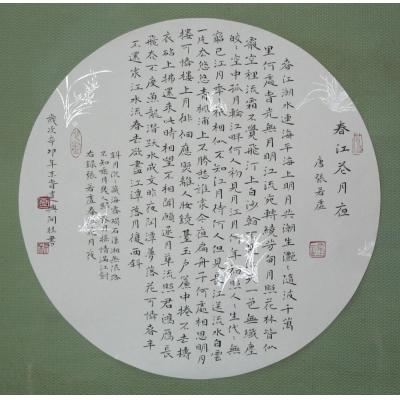 春江花月夜
唐 張若虛
春江潮水連海平海上明月共潮生灩〻隨波千萬
里何處春江無月明江流宛轉繞芳甸月照花林皆似
霰空裡流霜不覺飛汀上白沙看不見江天一色無纖塵
皎〻空中孤月輪江畔何人初見月江月何年初照人〻生代〻無
窮已江月年〻祇相似不知江月待何人但見長江送流水白雲
一片去悠悠青楓浦上不勝愁誰家今夜扁舟子何處相思明月
樓可憐樓上月徘徊應照離人妝鏡臺玉戶簾中捲不去擣
衣砧上拂還來此時相望不相聞願逐月華流照君鴻雁長
飛光不度魚龍潛躍水成文昨夜閒潭夢落花可憐春半
不還家江水流春去欲盡江潭落月復西斜
斜月沉〻藏海霧碣石瀟湘無限路
不知乘月幾人歸落月搖情滿江樹
右錄張若虛春江花月夜
歲次辛卯年冬